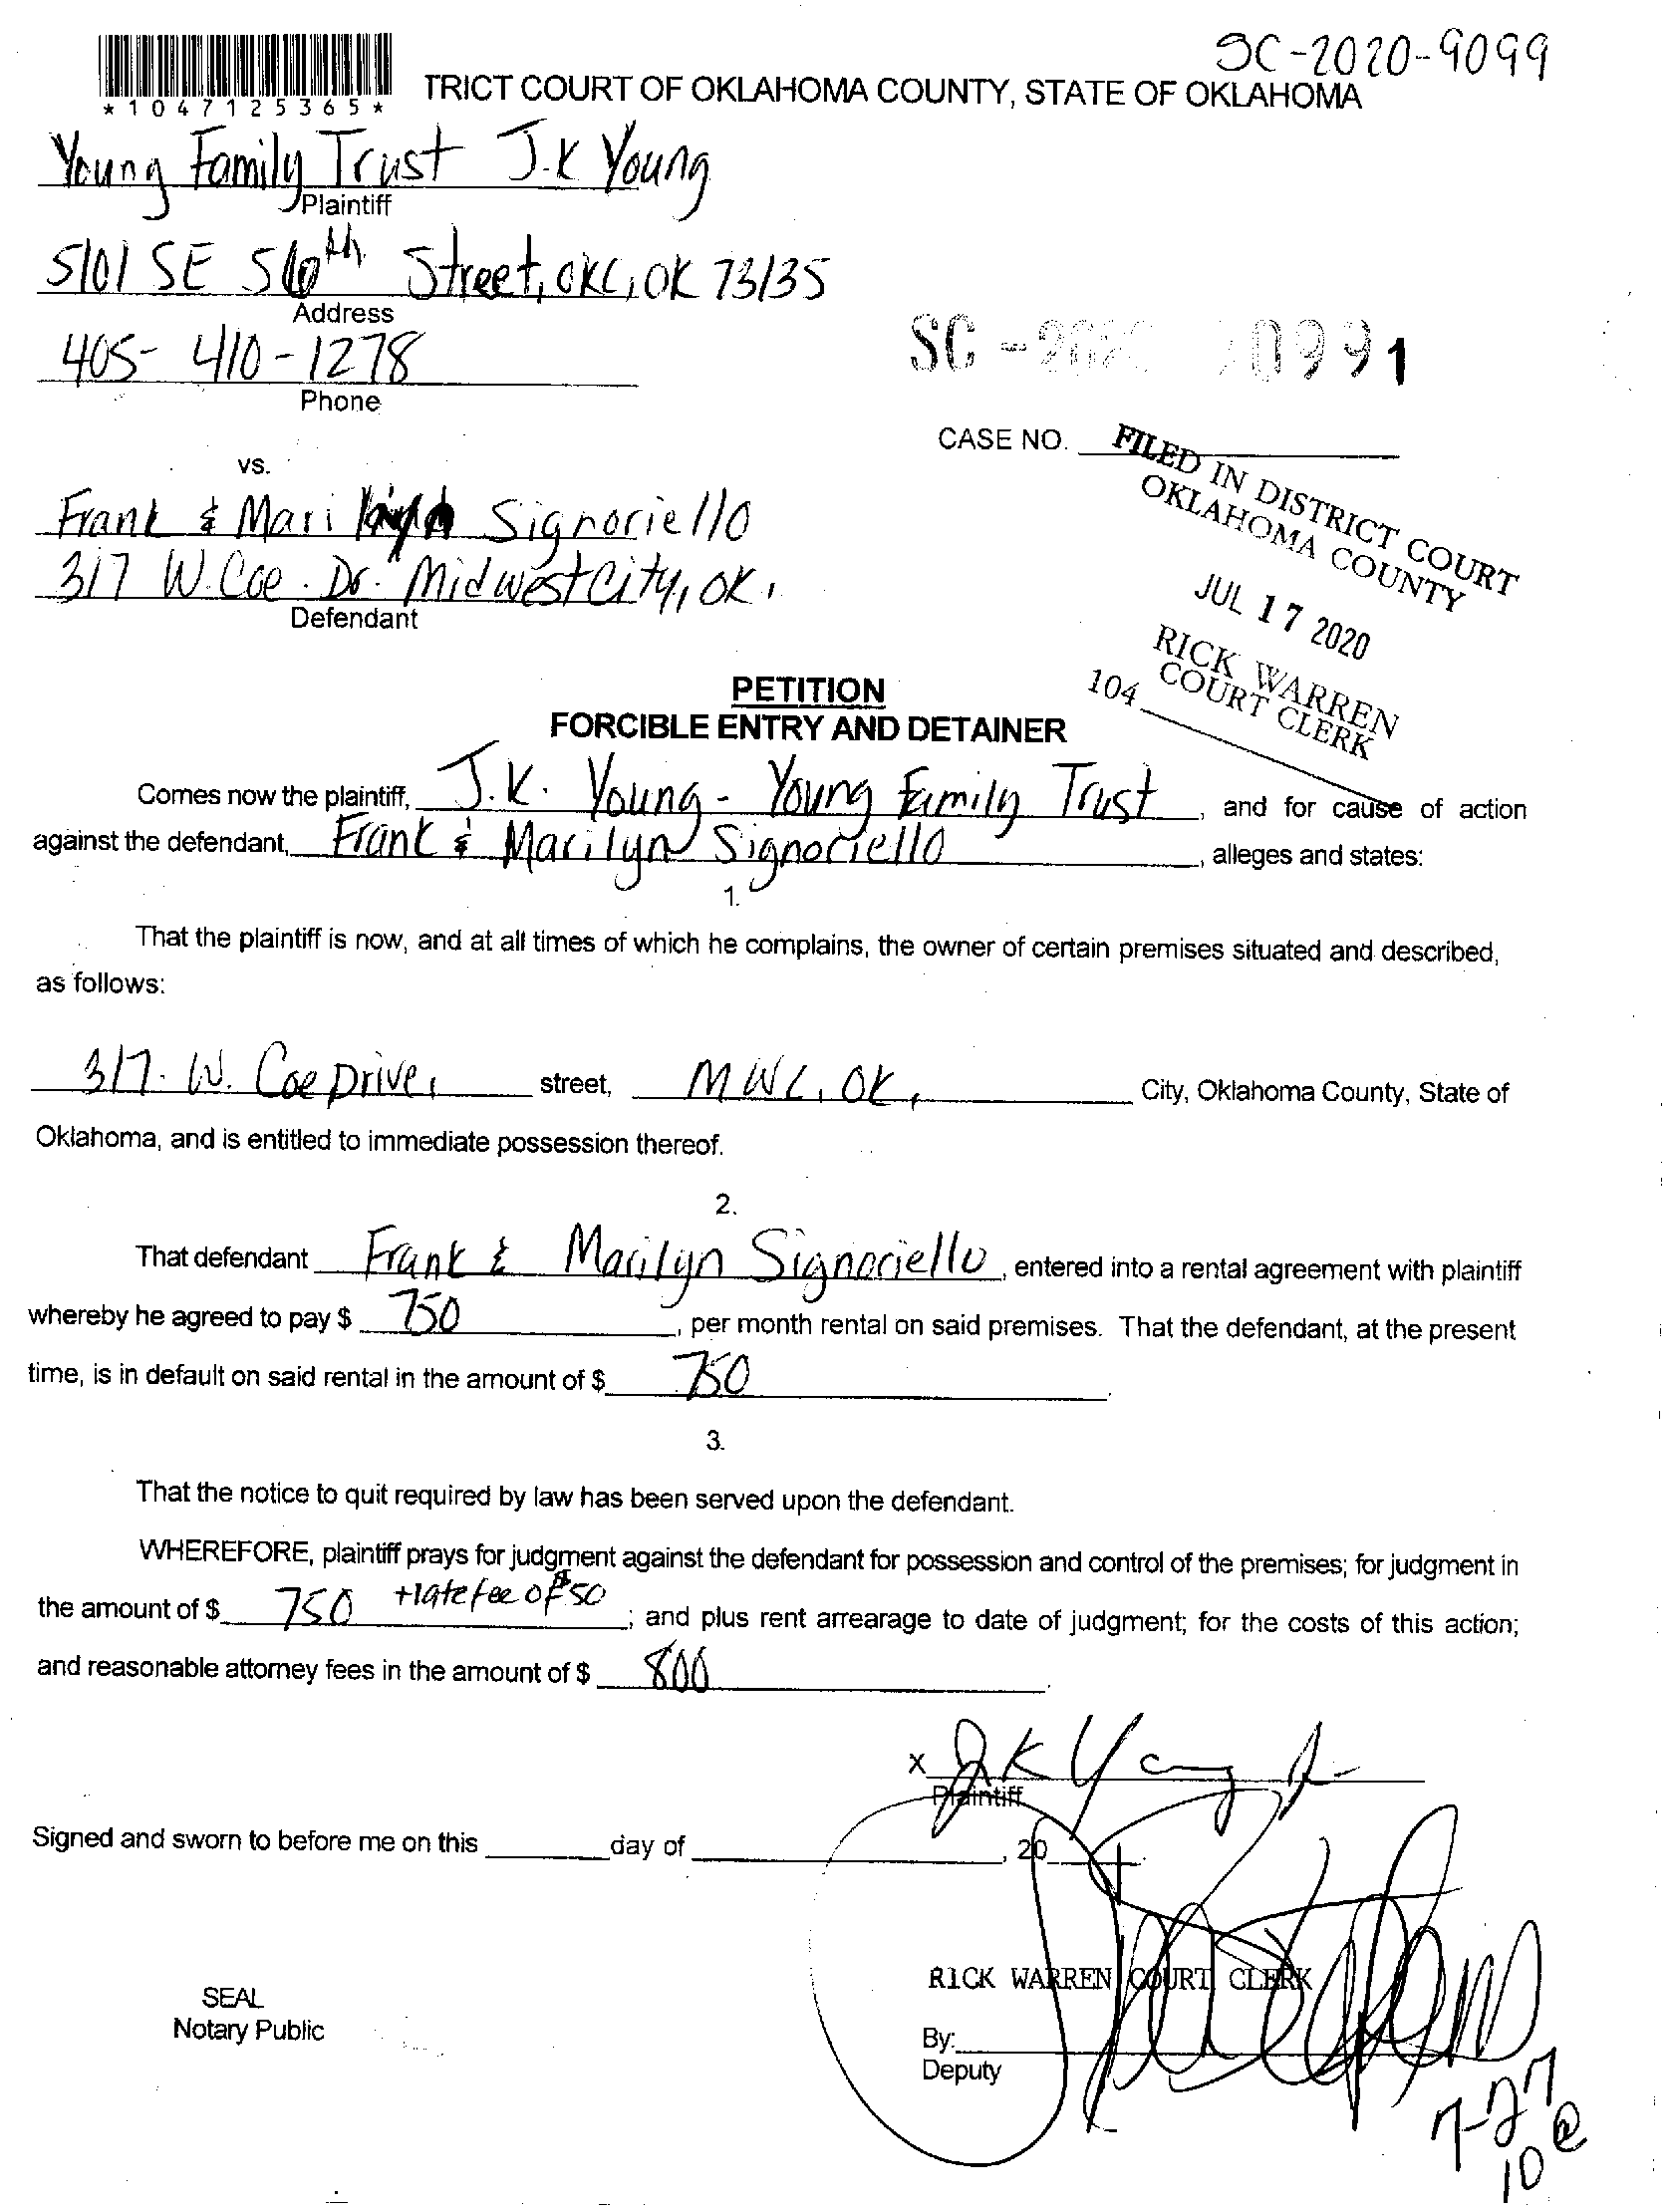 SC-2020-9099
*1047125365*
TRICT COURT OF OKLAHOMA COUNTY, STATE OF OKLAHOMA
Young Family Trust J.K Young
Plaintiff
5101 SE 56th Street, OKC, OK 73135
Address
405-410-1278
Phone
SC - 991
CASE NO.
FILED IN DISTRICT COURT
OKLAHOMA COUNTY
JUL 17 2020
RICK WARREN
COURT CLERK
104
vs.
Frank & Marilyn Signoriello
317 W. Coe. Dr. Midwest City, OK,
Defendant
PETITION
FORCIBLE ENTRY AND DETAINER
Comes now the plaintiff, J.K. Young - Young Family Trust, and for cause of action
against the defendant, Frank & Marilyn Signoriello, alleges and states:
1.
That the plaintiff is now, and at all times of which he complains, the owner of certain premises situated and described,
as follows:
317. W. Coe Drive, street, MWC, OK, City, Oklahoma County, State of
Oklahoma, and is entitled to immediate possession thereof.
2.
That defendant Frank & Marilyn Signoriello, entered into a rental agreement with plaintiff
whereby he agreed to pay $ 750, per month rental on said premises. That the defendant, at the present
time, is in default on said rental in the amount of $ 750.
3.
That the notice to quit required by law has been served upon the defendant.
WHEREFORE, plaintiff prays for judgment against the defendant for possession and control of the premises; for judgment in
the amount of $ 750 + late fee of $50; and plus rent arrearage to date of judgment; for the costs of this action;
and reasonable attorney fees in the amount of $ 800.
X JK Young Jr
Plaintiff
Signed and sworn to before me on this day of , 20
RICK WARREN COURT CLERK
SEAL
Notary Public
By:
Deputy
7-27
@
10